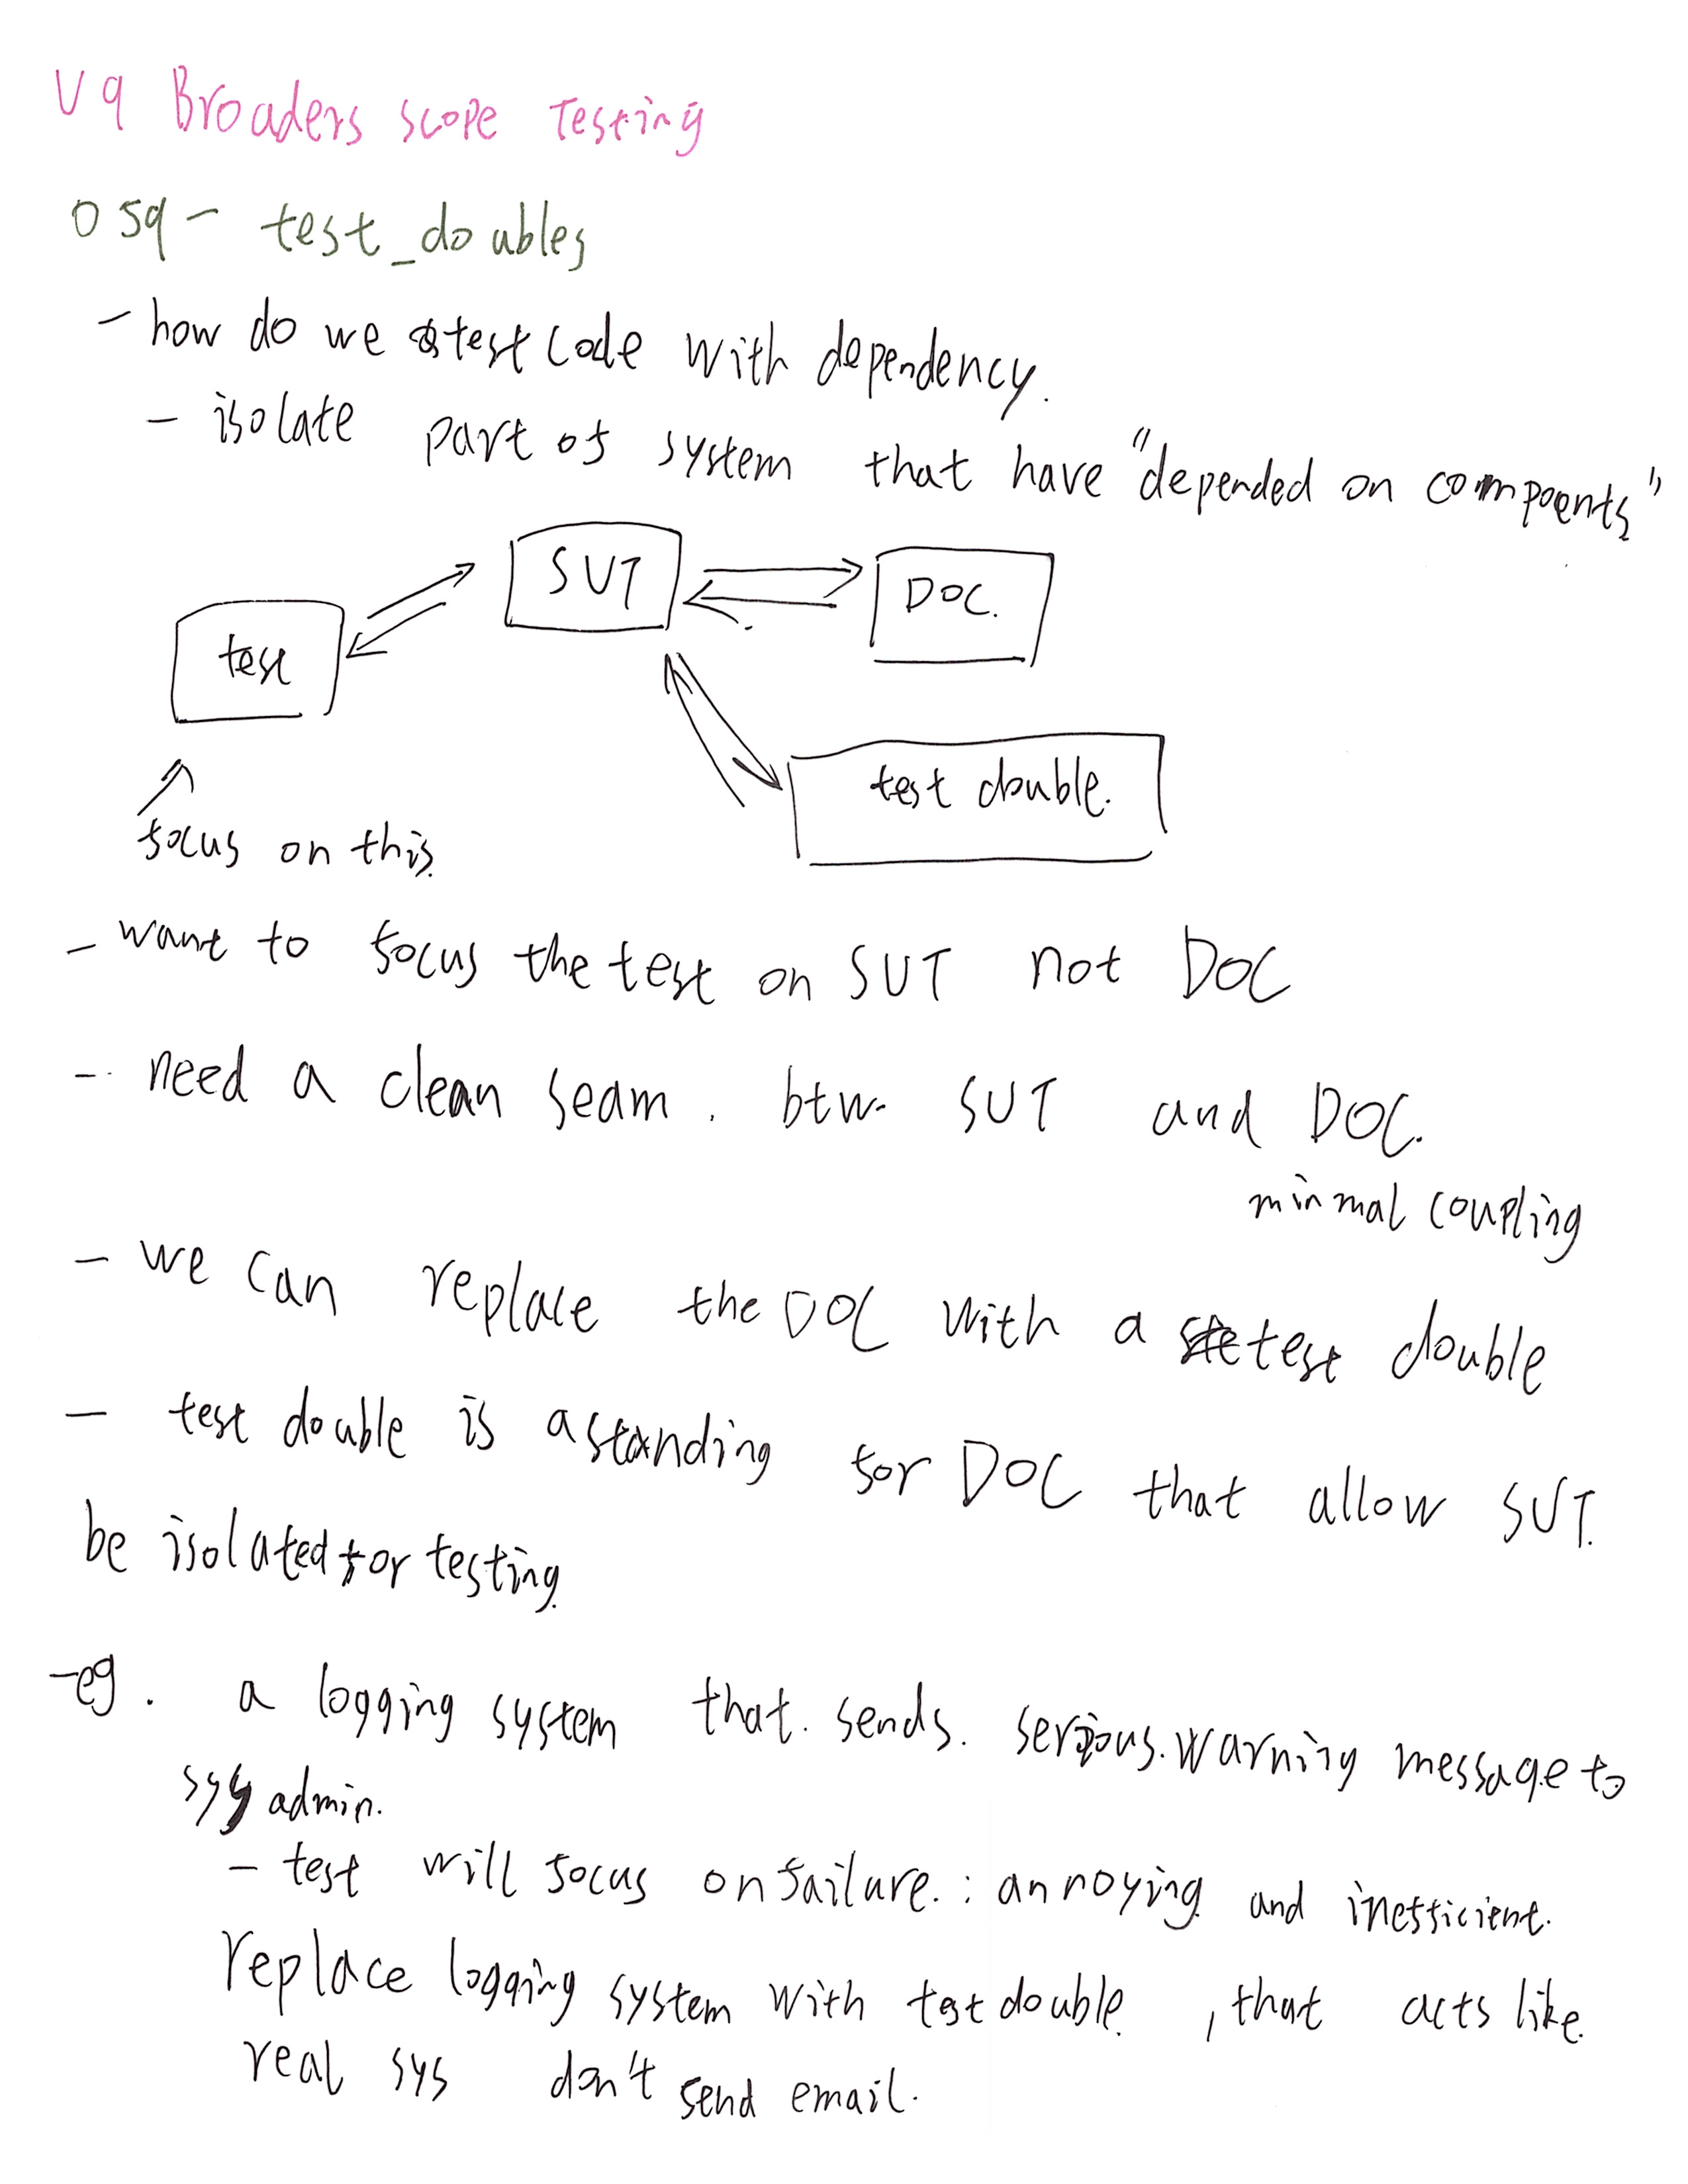 V9 Broaders scope Testing
059- test_doubles
- how do we test code with dependency.
- isolate part of system that have "depended on compoents"
SUT
DOC.
test
test double.
focus on this.
- want to focus the test on SUT not DOC
- need a clean seam. btw. SUT and DOC.
minmal coupling
- we can replace the DOC with a test double
- test double is a standing for DOC that allow SUT.
be isolated for testing.
-eg. a logging system that. sends. serious. warning message to
sys admin.
- test will focus on failure. : annoying and inefficient.
replace logging system with test double, that acts like
real sys don't send email.